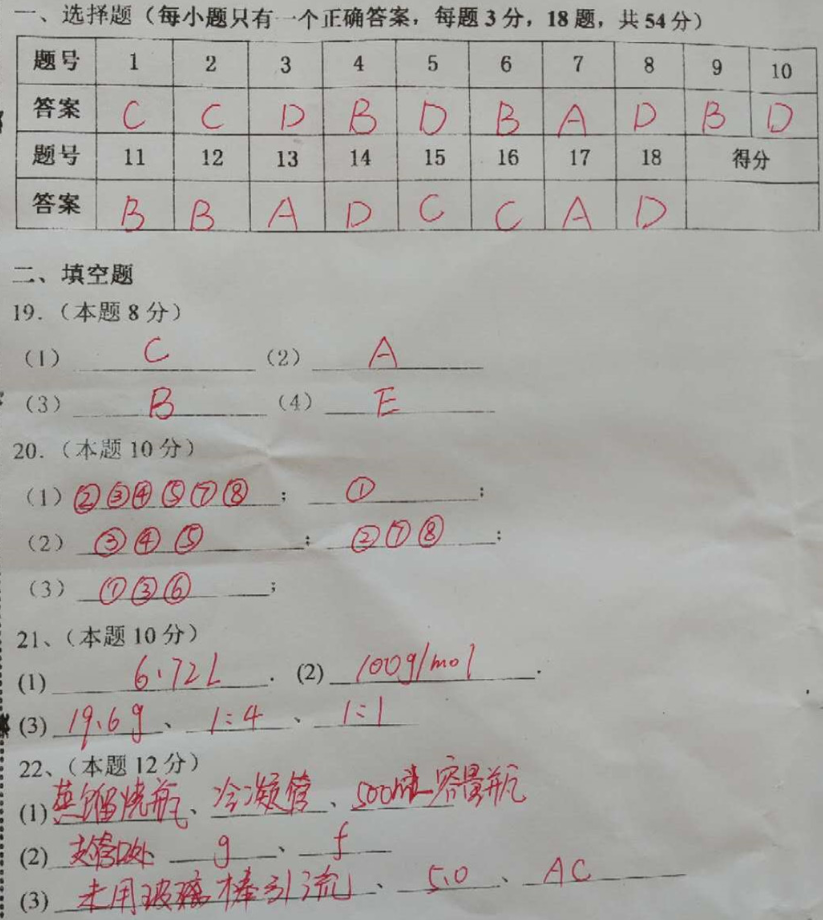 一、选择题（每小题只有一个正确答案，每题3分，18题，共54分）
题号 1 2 3 4 5 6 7 8 9 10
答案 C C D B D B A D B D
题号 11 12 13 14 15 16 17 18 得分
答案 B B A D C C A D
二、填空题
19.（本题8分）
（1） C （2） A
（3） B （4） E
20.（本题10分）
（1）②③④⑤⑦⑧； ①；
（2）③④⑤； ②⑦⑧；
（3）①③⑥；
21、（本题10分）
(1) 6.72L. (2) 100g/mol.
(3) 19.6g、 1:4、 1:1
22、（本题12分）
(1) 蒸馏烧瓶、冷凝管、500mL容量瓶
(2) 支管口处 g、 f
(3) 未用玻璃棒引流、 5.0、 AC